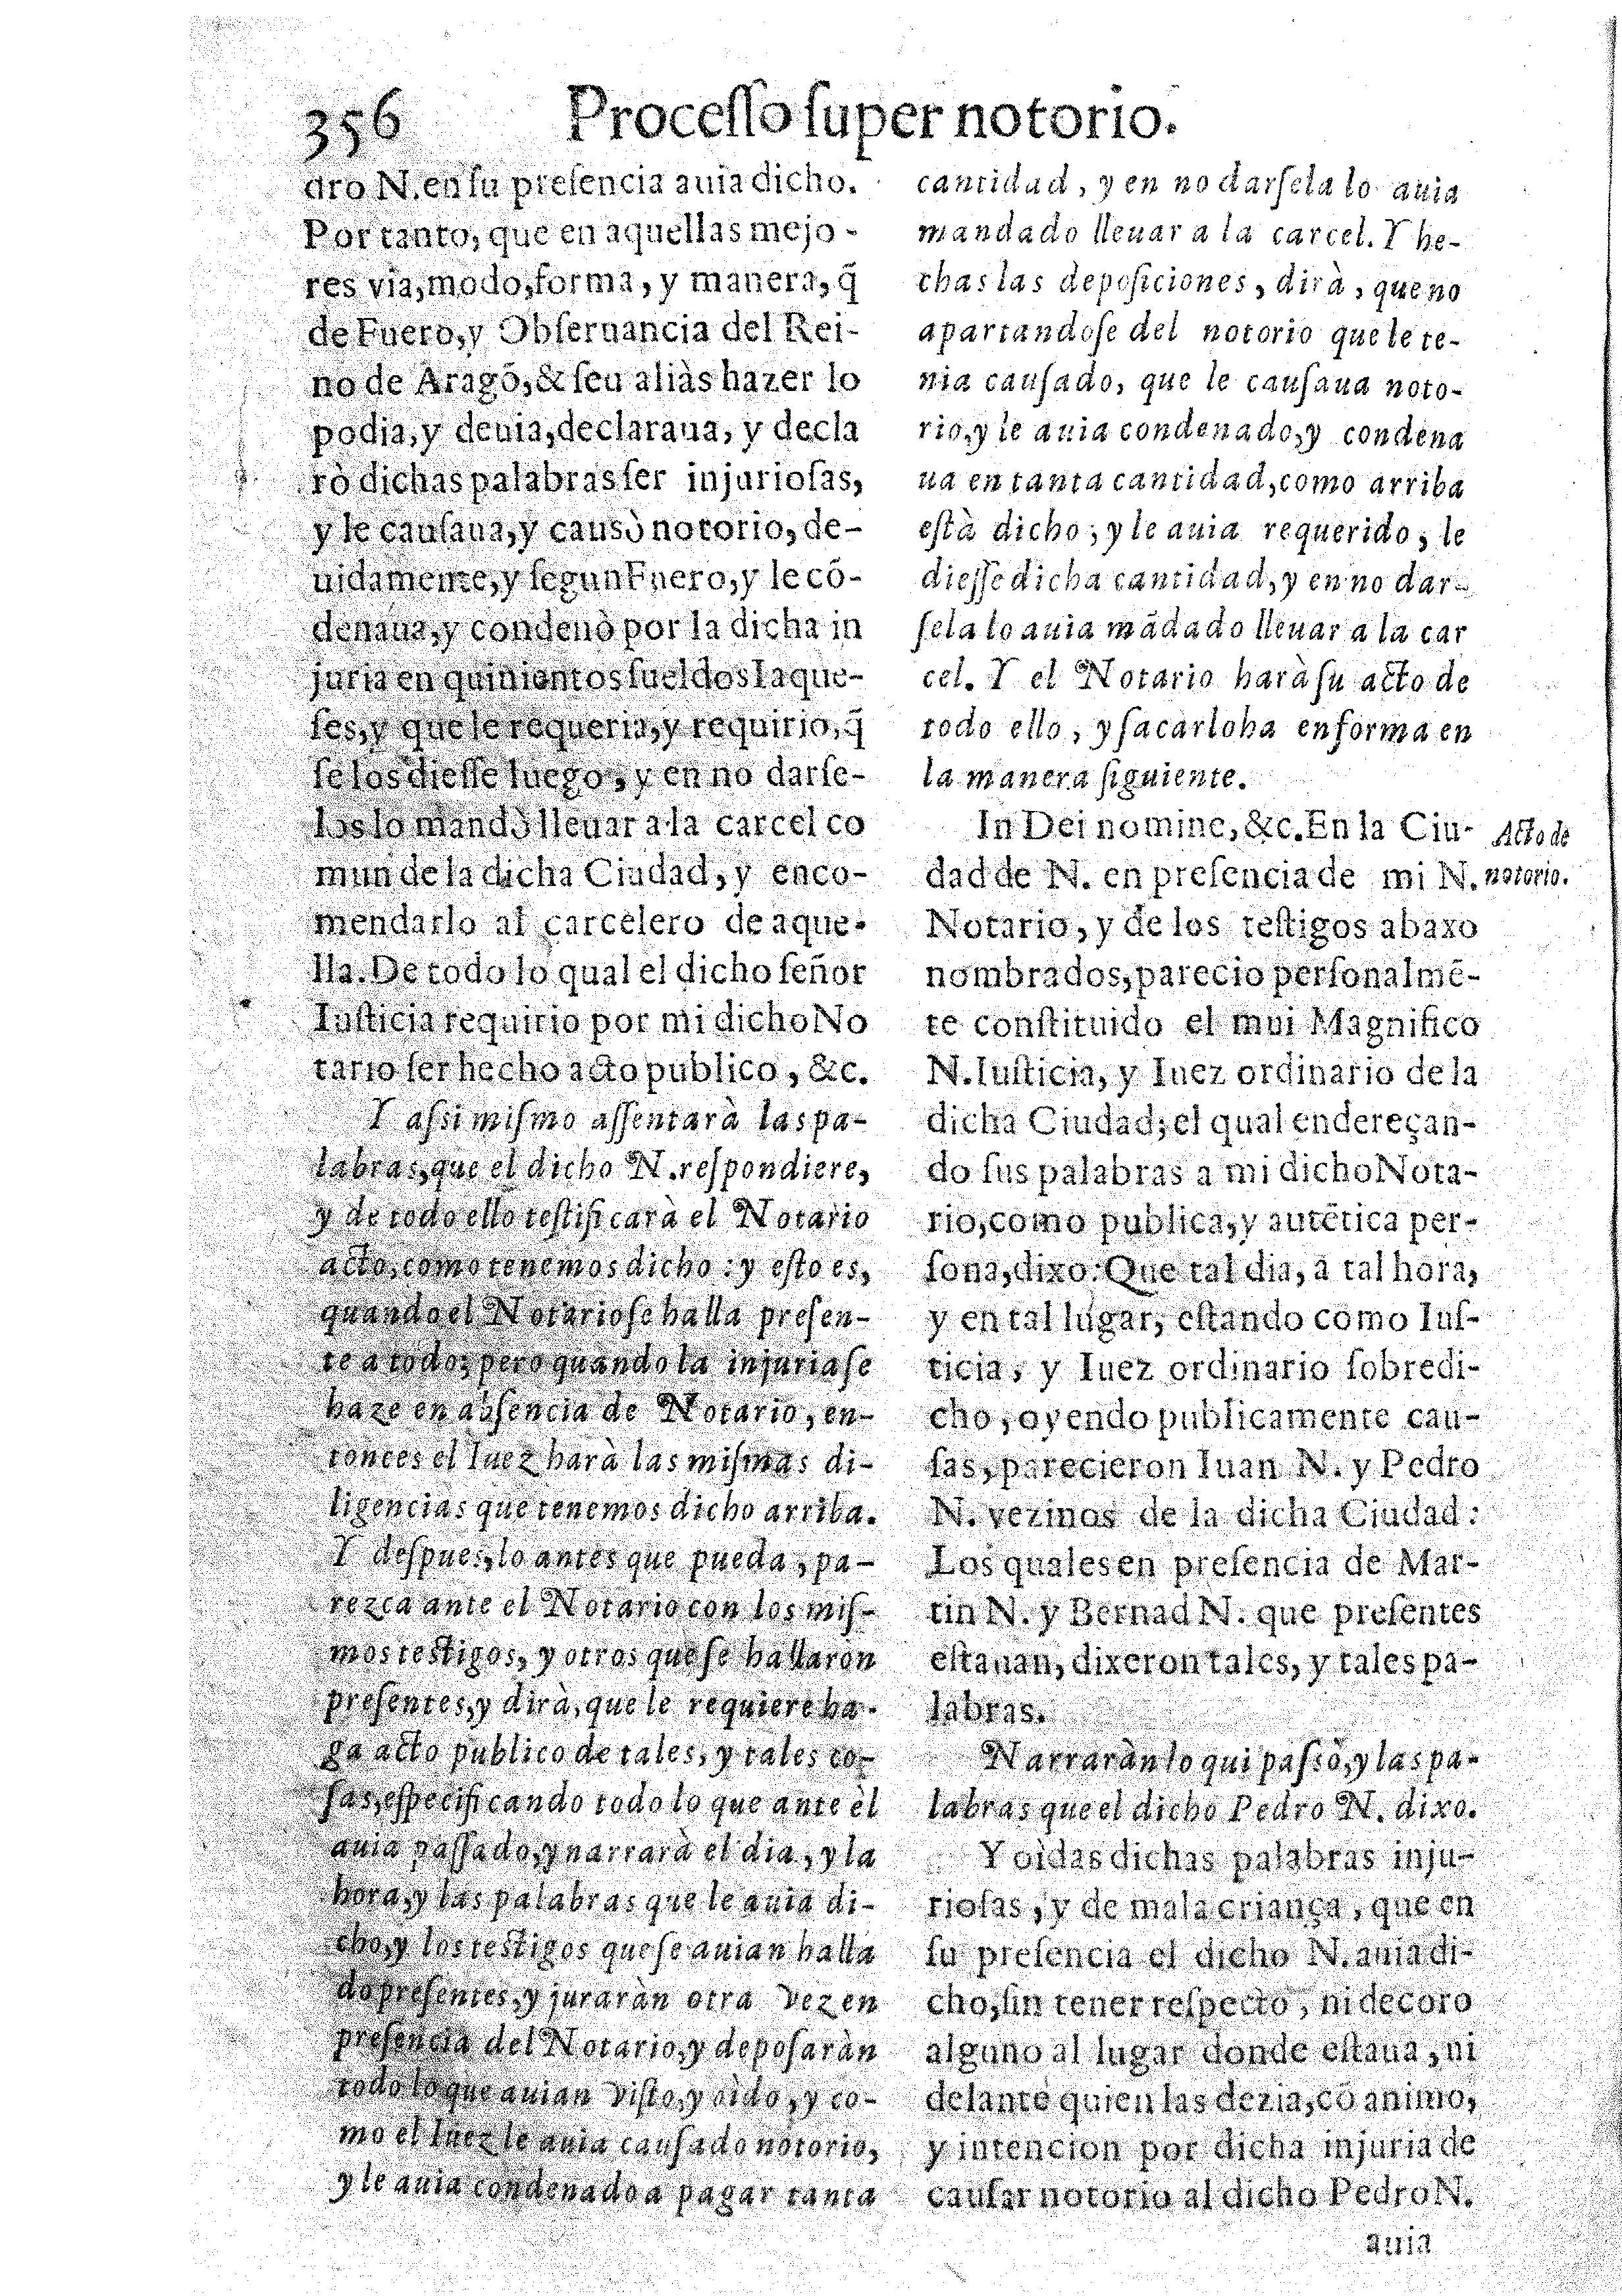 356 Processo super notorio.
dro N. en su presencia auia dicho.
Por tanto, que en aquellas mejo-
res via, modo, forma, y manera, q̃
de Fuero, y Obseruancia del Rei-
no de Aragõ, & seu aliàs hazer lo
podia, y deuia, declaraua, y decla
rò dichas palabras ser injuriosas,
y le causaua, y causò notorio, de-
uidamente, y segun Fuero, y le cõ-
denaua, y condenò por la dicha in
juria en quinientos sueldos Iaque-
ses, y que le requeria, y requirio, q̃
se los diesse luego, y en no darse-
los lo mandò lleuar a la carcel co
mun de la dicha Ciudad, y enco-
mendarlo al carcelero de aque-
lla. De todo lo qual el dicho señor
Iusticia requirio por mi dicho No
tario ser hecho acto publico, &c.
Y assi mismo assentarà las pa-
labras, que el dicho N. respondiere,
y de todo ello testificarà el Notario
acto, como tenemos dicho: y esto es,
quando el Notario se halla presen-
te a todo; pero quando la injuria se
haze en absencia de Notario, en-
tonces el Iuez harà las mismas di-
ligencias que tenemos dicho arriba.
Y despues, lo antes que pueda, pa-
rezca ante el Notario con los mis-
mos testigos, y otros que se hallaron
presentes, y dirà, que le requiere ha-
ga acto publico de tales, y tales co-
sas, especificando todo lo que ante èl
auia passado, y narrarà el dia, y la
hora, y las palabras que le auia di-
cho, y los testigos que se auian halla
do presentes, y juraràn otra vez en
presencia del Notario, y deposaràn
todo lo que auian visto, y oìdo, y co-
mo el Iuez le auia causado notorio,
y le auia condenado a pagar tanta
cantidad, y en no darsela lo auia
mandado lleuar a la carcel. Y he-
chas las deposiciones, dirà, que no
apartandose del notorio que le te-
nia causado, que le causaua noto-
rio, y le auia condenado, y condena
ua en tanta cantidad, como arriba
està dicho; y le auia requerido, le
diesse dicha cantidad, y en no dar-
sela lo auia mãdado lleuar a la car
cel. Y el Notario harà su acto de
todo ello, y sacarloha en forma en
la manera siguiente.
In Dei nomine, &c. En la Ciu-
dad de N. en presencia de mi N.
Acto de
notorio.
Notario, y de los testigos abaxo
nombrados, parecio personalmẽ-
te constituido el mui Magnifico
N. Iusticia, y Iuez ordinario de la
dicha Ciudad; el qual endereçan-
do sus palabras a mi dicho Nota-
rio, como publica, y autẽtica per-
sona, dixo: Que tal dia, a tal hora,
y en tal lugar, estando como Ius-
ticia, y Iuez ordinario sobredi-
cho, oyendo publicamente cau-
sas, parecieron Iuan N. y Pedro
N. vezinos de la dicha Ciudad:
Los quales en presencia de Mar-
tin N. y Bernad N. que presentes
estauan, dixeron tales, y tales pa-
labras.
Narraràn lo qui passò, y las pa-
labras que el dicho Pedro N. dixo.
Y oìdas dichas palabras inju-
riosas, y de mala criança, que en
su presencia el dicho N. auia di-
cho, sin tener respecto, ni decoro
alguno al lugar donde estaua, ni
delante quien las dezia, cõ animo,
y intencion por dicha injuria de
causar notorio al dicho Pedro N.
auia